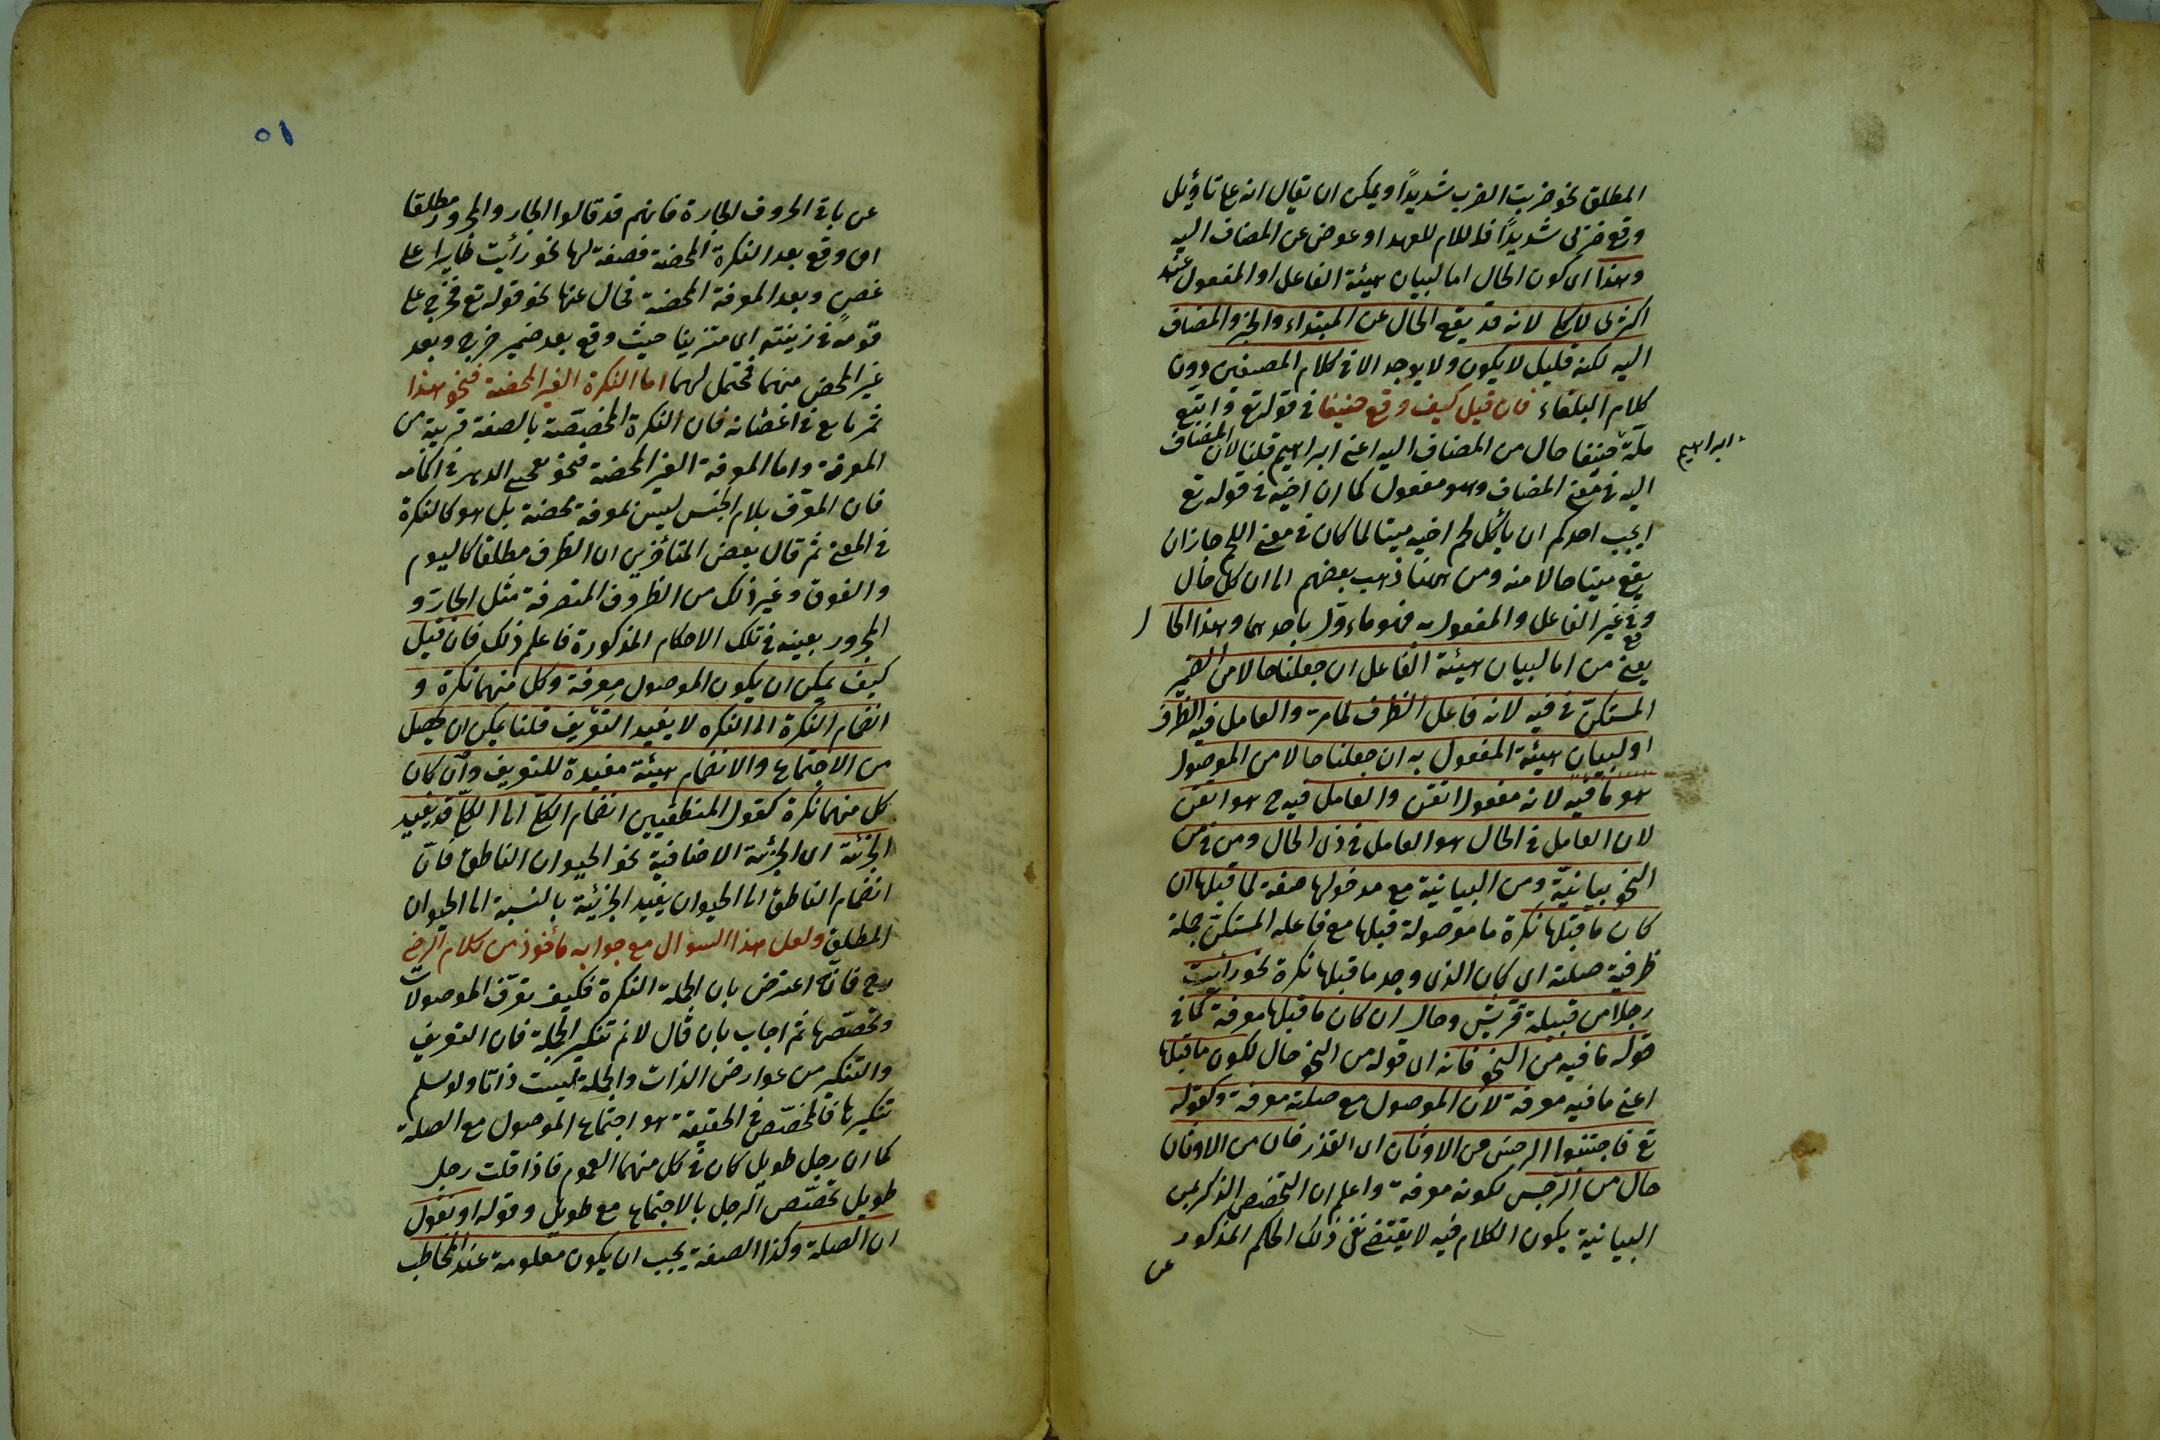 المطلق نحو ضربت الضرب شديدًا ويمكن ان يقال انه على تاويل
وقع ضربى شديدًا فاللام للعهد او عوض عن المضاف اليه
وهذا اى كون الحال اما لبيان هيئة الفاعل او المفعول عنده
اكثرى لا كلى لانه قد يقع الحال عن المبتداء والخبر والمضاف
اليه لكنه قليل لا يكون ولا يوجد الا فى كلام المصنفين دون
كلام البلغاء فان قيل كيف وقع حنيفا فى قوله تع واتبع
ملّة حنيفا حال من المضاف اليه اعنى ابراهيم قلنا لان المضاف
ابراهيم
اليه فى معنى المضاف وهو مفعول كما ان اخيه فى قوله تع
ايحب احدكم ان يأكل لحم اخيه ميتا لما كان فى معنى اللحم جاز ان
يقع ميتا حالا منه ومن ههنا ذهب بعضهم الى ان كل حال
وقع فى غير الفاعل والمفعول به فهو ماءوّل باحدهما وهذا الحال
يعنى من اما لبيان هيئة الفاعل ان جعلنا حالا من الضمير
المستكن فى فيه لانه فاعل الظرف لما مر والعامل فيه الظرف
او لبيان هيئة المفعول به ان جعلنا حالا من الموصول
هو ما فيه لانه مفعول اتقن والعامل فيه ح هو اتقن
لان العامل فى الحال هو العامل فى ذى الحال ومن فى من
النحو بيانيّة ومن البيانية مع مدخولها صفة لما قبلها ان
كان ما قبلها نكرة ما موصولة قبلها مع فاعله المستكن جملة
ظرفية صلته اى كان الذى وجد ما قبلها نكرة نحو رأيت
رجلا من قبيلة قريش وحال ان كان ما قبلها معرفة كما فى
قوله ما فيه من النحو فانه اى قوله من النحو حال لكون ما قبلها
اعنى ما فيه معرفة لان الموصول مع صلته معرفة وكقوله
تع فاجتنبوا الرجس من الاوثان اى القذر فان من الاوثان
حال من الرجس لكونه معرفة واعلم ان التخصيص الذكر بمن
البيانية يكون الكلام فيه لا يقتضى نفى ذلك الحكم المذكور
عن
٥١
عن باقى الحروف الجارة فانهم قد قالوا الجار والمجرور مطلقا
ان وقع بعد النكرة المحضة فصفة لها نحو رأيت طايرا على
غصن وبعد المعرفة المحضة فحال عنها نحو قوله تع فخرج على
قومه فى زينته اى متزينا حيث وقع بعد ضمير خرج وبعد
غير المحض منهما فمحتمل لهما اما النكرة الغير المحضة فنحو هذا
ثمر يانع فى اغصانه فان النكرة المخصّصة بالصفة قريبة من
المعرفة واما المعرفة الغير المحضة فنحو يعجبنى الزهر فى اكمامه
فان المعرّف بلام الجنس ليس بمعرفة محضة بل هو كالنكرة
فى المعنى ثم قال بعض المتأخرين ان الظرف مطلقا كاليوم
والفوق وغير ذلك من الظروف المتصرفة مثل الجارّ و
المجرور بعينه فى تلك الاحكام المذكورة فاعلم ذلك فان قيل
كيف يمكن ان يكون الموصول معرفة وكل منهما نكرة و
انضمام النكرة الى النكره لا يفيد التعريف قلنا يمكن ان يحصل
من الاجتماع والانضمام هيئة مفيدة للتعريف وان كان
كل منهما نكرة كقول المنطقيين انضمام الكلّى الى الكلّى قد يفيد
الجزئية اى الجزئية الاضافية نحو الحيوان الناطق فان
انضمام الناطق الى الحيوان يفيد الجزئية بالنسبة الى الحيوان
المطلق ولعل هذا السؤال مع جوابه مأخوذ من كلام الرضى
رح فانّه اعترض بان الجملة النكرة فكيف تعرّف الموصولات
وتخصّصها ثم اجاب بان قال لا نم تنكير الجملة فان التعريف
والتنكير من عوارض الذات والجملة ليست ذاتا ولو سلم
تنكيرها فالمخصّص فى الحقيقة هو اجتماع الموصول مع الصلة
كما ان رجل طويل كان فى كل منهما العموم فاذا قلت رجل
طويل تخصّص الرجل بالاجتماع مع طويل وقوله او نقول
ان الصلة وكذا الصفة يجب ان يكون معلومة عند المخاطب